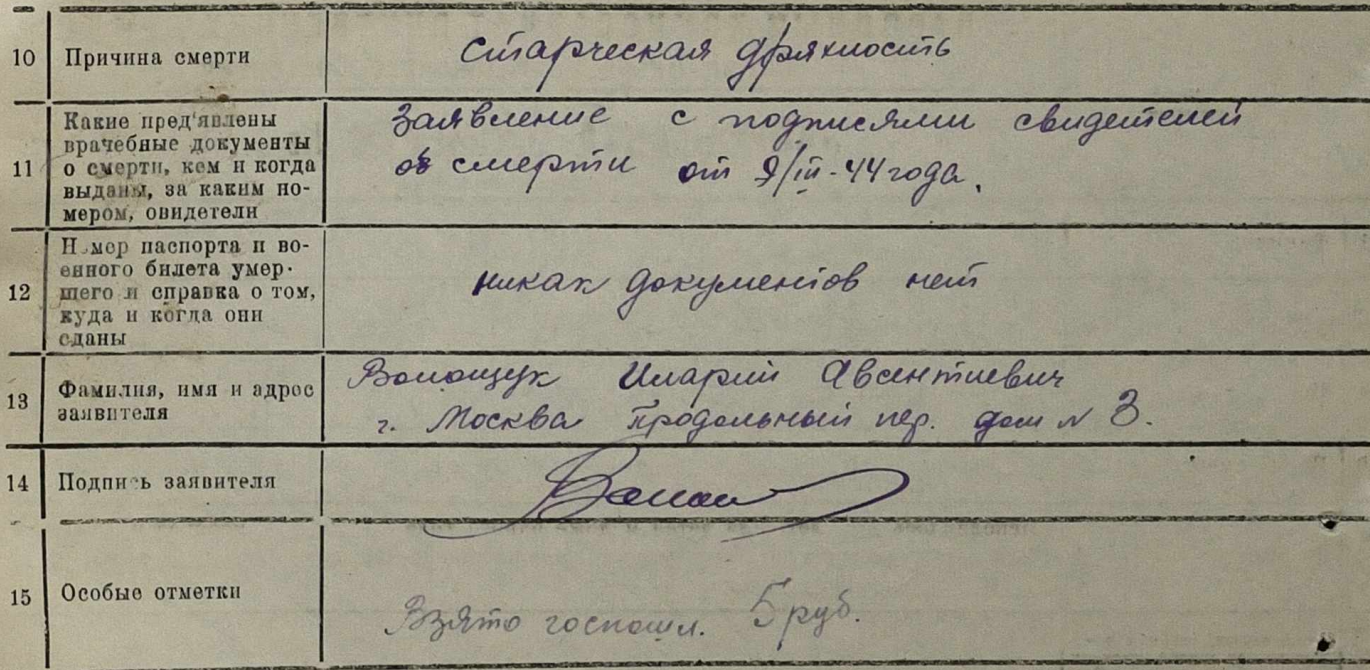 10 Причина смерти старческая дряхлость
11 Какие пред'явлены
врачебные документы
о смерти, кем и когда
выданы, за каким но-
мером, овидетели
Заявление с подписями свидетелей
об смерти от 9/III-44 года.
12 Номер паспорта и во-
енного билета умер-
шего и справка о том,
куда и когда они
сданы
никак документов нет
13 Фамилия, имя и адрес
заявителя
Волощук Иларий Авсентиевич
г. Москва Продольный пер. дом № 3.
14 Подпись заявителя
15 Особые отметки
Взято госпошл. 5 руб.